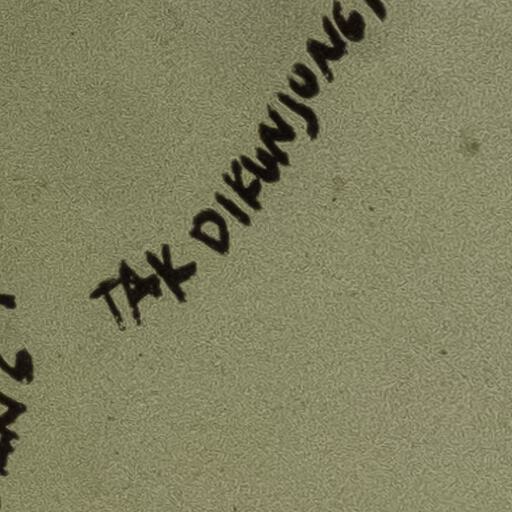 TAK DIKUNJUNGI